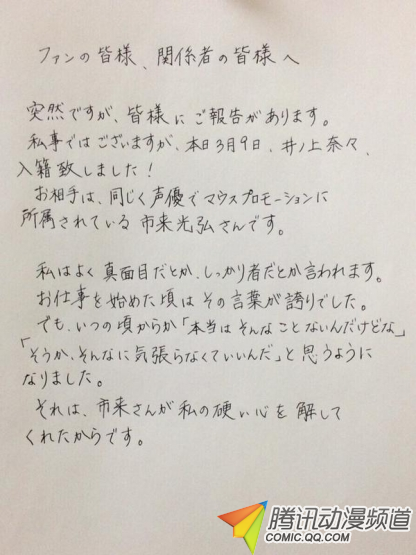 ファンの皆様、関係者の皆様へ
突然ですが、皆様にご報告があります。
私事ではございますが、本日3月9日、井ノ上奈々、
入籍致しました！
お相手は、同じく声優でマウスプロモーションに
所属されている市来光弘さんです。
私はよく真面目だとか、しっかり者だとか言われます。
お仕事を始めた頃はその言葉が誇りでした。
でも、いつの頃からか「本当はそんなことないんだけどな」
「そうか、そんなに気張らなくていいんだ」と思うように
なりました。
それは、市来さんが私の硬い心を解して
くれたからです。
腾讯动漫频道
COMIC.QQ.COM